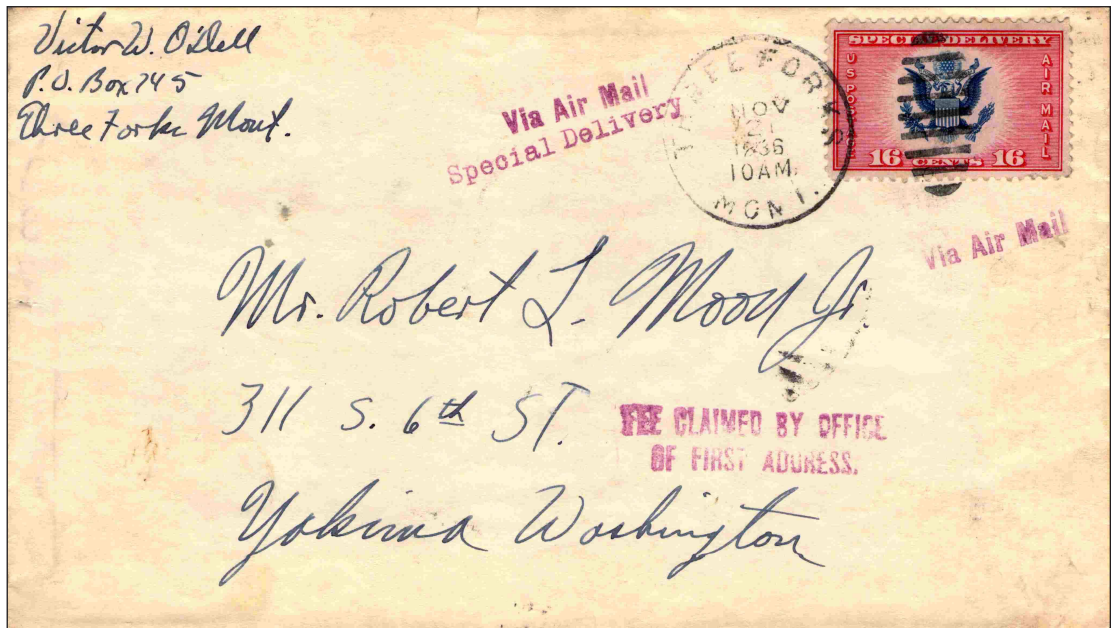 Victor W. O'Dell
P.O. Box 745
Three Forks Mont.
Via Air Mail
Special Delivery
THREE FORKS
NOV
1936
10AM.
MONT.
SPECIAL DELIVERY
US POSTAGE
AIR MAIL
16 CENTS 16
Via Air Mail
Mr. Robert L. Mood Jr.
311 S. 6th ST.
FEE CLAIMED BY OFFICE
OF FIRST ADDRESS.
Yakima Washington